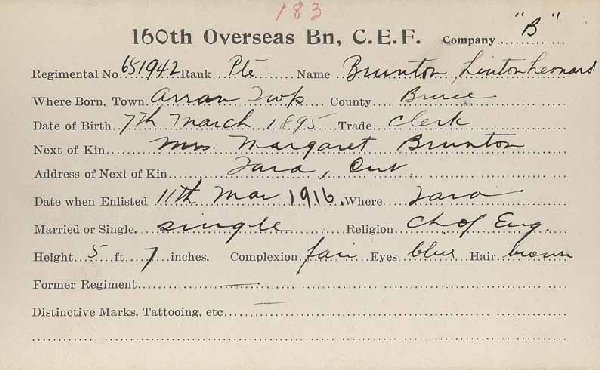 183
160th Overseas Bn, C.E.F. Company "B"
Regimental No 651942 Rank Pte Name Brunton Linton Leonard
Where Born, Town Arran Twp County Bruce
Date of Birth 7th March 1895 Trade Clerk
Next of Kin Mrs Margaret Brunton
Address of Next of Kin Tara, Ont
Date when Enlisted 11th Mar 1916. Where Tara
Married or Single. single Religion Ch of Eng
Height 5 ft 7 inches. Complexion fair Eyes blue Hair brown
Former Regiment —
Distinctive Marks, Tattooing, etc —